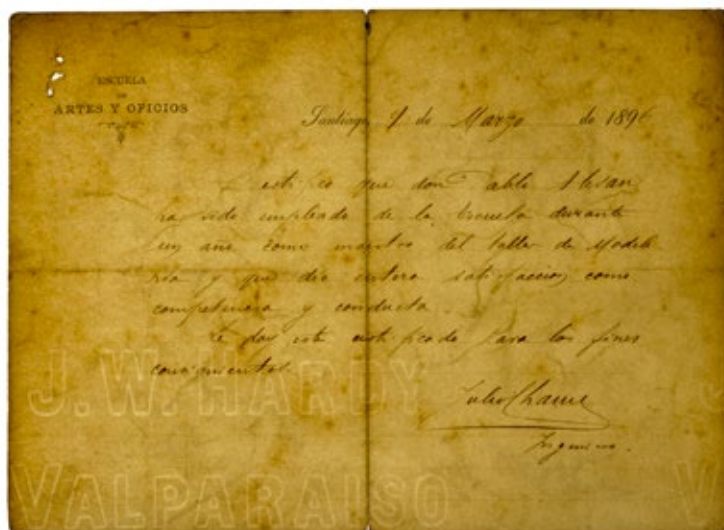 ESCUELA
DE
ARTES Y OFICIOS
Santiago, 9 de Marzo de 1896
que don Pablo
ha sido empleado de la Escuela durante
un año como maestro del taller de Modele
ria y que dio entera satisfaccion como
competencia y conducta.
Le doy este certificado para los fines
consiguientes.
Julio
Ingeniero.
J.W. HARDY
VALPARAISO
V